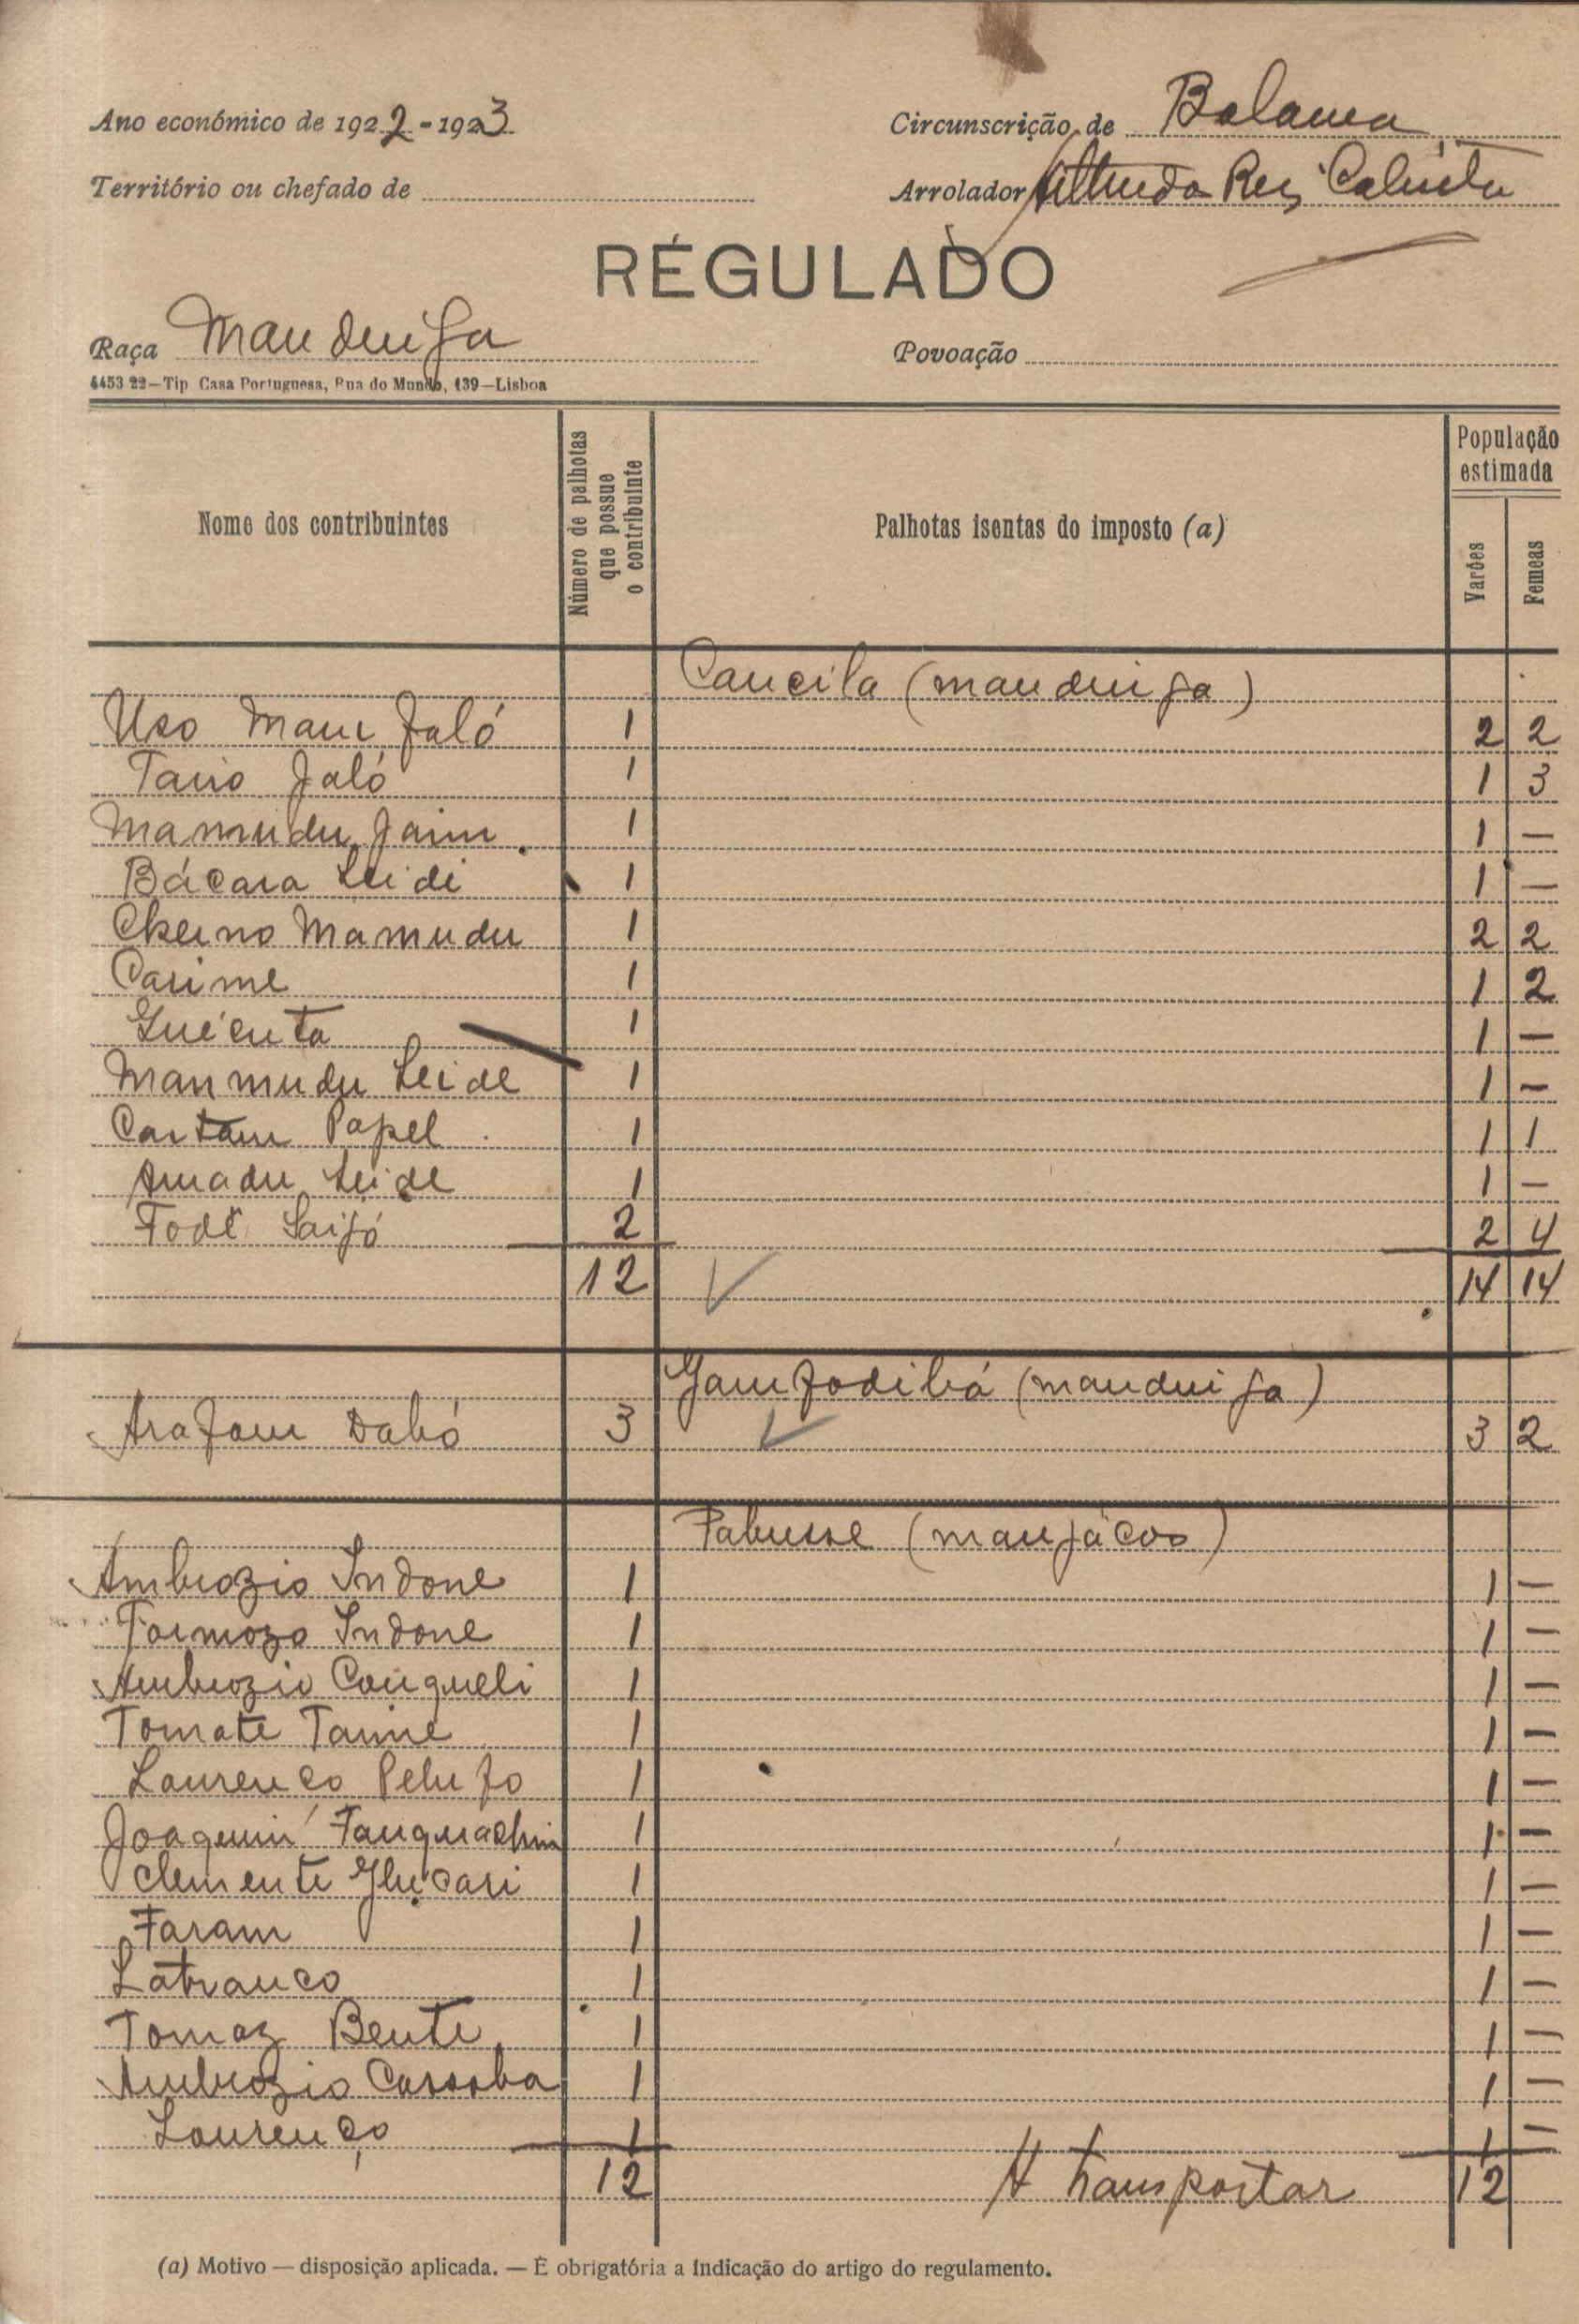 Ano económico de 1922-1923
Circunscrição de Bolama
Território ou chefado de
Arrolador Alfredo Reis Calista
RÉGULADO
Raça Mandinga
Povoação
4453 22—Tip Casa Portuguesa, Rua do Mundo, 139—Lisboa
Nome dos contribuintes
Número de palhotas que possue o contribuinte
Palhotas isentas do imposto (a)
População estimada
Varões
Femeas
Cancila (mandinga)
Uso Mam Jaló 1 2 2
Jaló 1 1 3
Mamudu Jam 1 1 —
Bácara Seidi 1 1 —
Cherno Mamudu 1 2 2
Carime 1 1 2
Guéenta 1 1 —
Manmudu Seide 1 1 —
Papel 1 1 1
Amadu Seide 1 1 —
Fodé 2 2 4
12 14 14
(mandinga)
Arafam Dabó 3 3 2
(manjacos)
Ambrozio Indone 1 1 —
Formozo Indone 1 1 —
Ambrozio Cangueli 1 1 —
Tomate 1 1 —
Lourenço 1 1 —
Joaquim 1 1 —
Clemente 1 1 —
Faram 1 1 —
Latranco 1 1 —
Tomaz Bente 1 1 —
Ambrozio Cassoba 1 1 —
Lourenço 1 1 —
12 A transportar 12
(a) Motivo — disposição aplicada. — É obrigatória a indicação do artigo do regulamento.